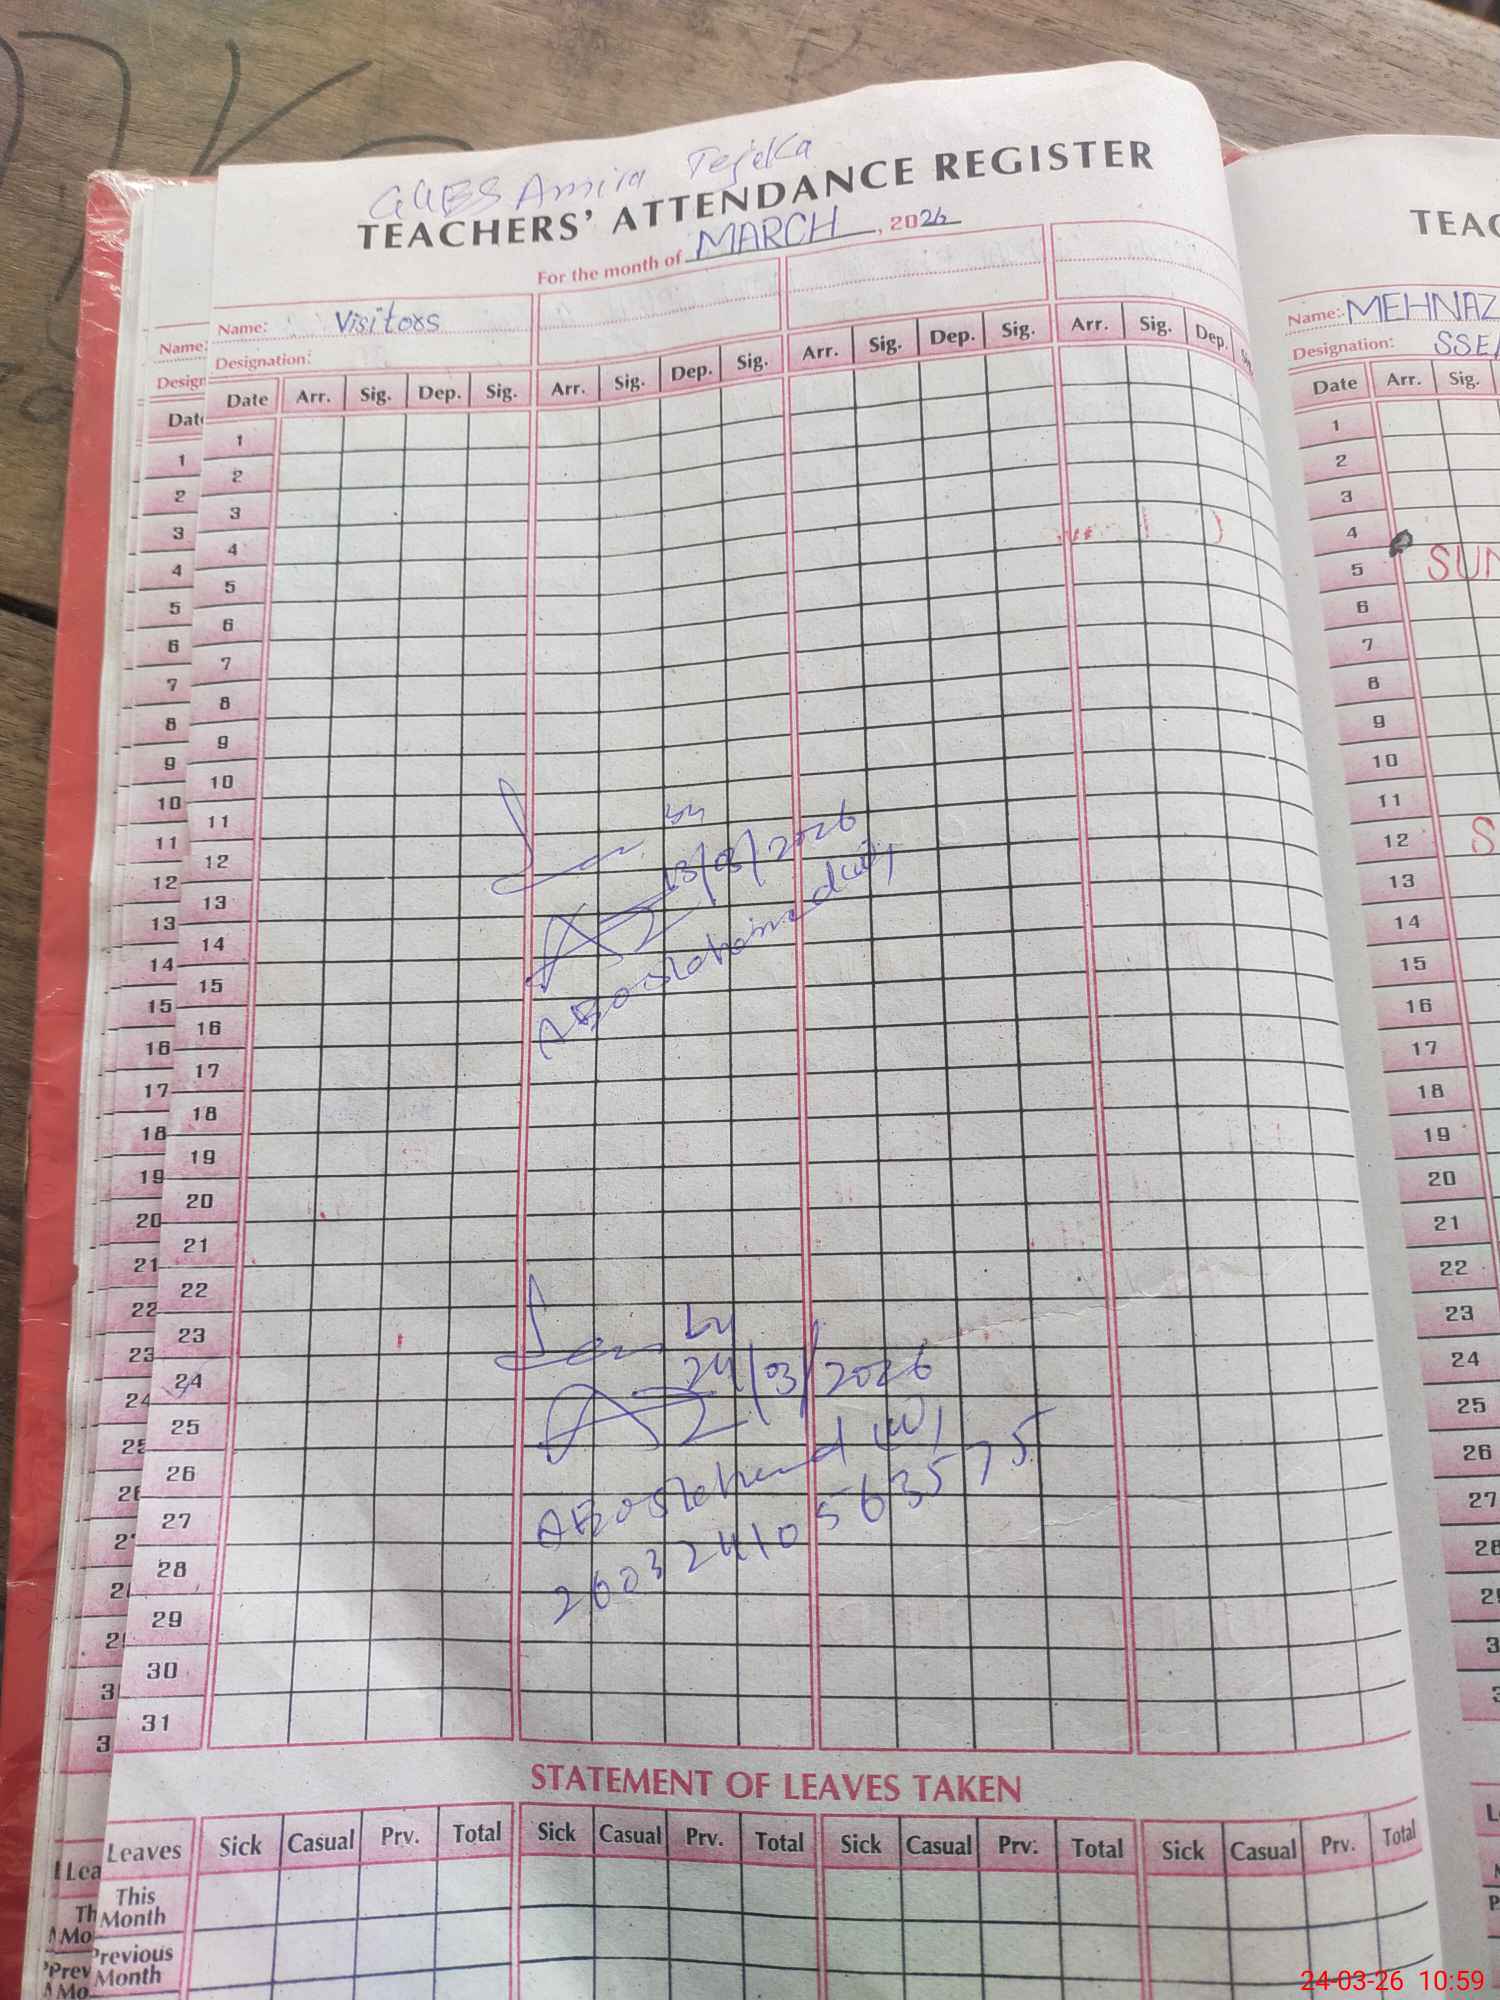 GGBS Amira Tejeka
TEACHERS' ATTENDANCE REGISTER
For the month of MARCH, 2026
Name: Visitors
Designation:
Date Arr. Sig. Dep. Sig. Arr. Sig. Dep. Sig. Arr. Sig. Dep. Sig. Arr. Sig. Dep.
1
2
3
4
5
6
7
8
9
10
11
12
13
14
15
16
17
18
19
20
21
22
23
24
25
26
27
28
29
30
31
13/03/2026
24/03/2026
26032410563575
STATEMENT OF LEAVES TAKEN
Leaves Sick Casual Prv. Total Sick Casual Prv. Total Sick Casual Prv. Total Sick Casual Prv. Total
This Month
Previous Month
Name: MEHNAZ
Designation: SSE
Date Arr. Sig.
1
2
3
4
5 SUN
6
7
8
9
10
11
12 S
13
14
15
16
17
18
19
20
21
22
23
24
25
26
27
24-03-26 10:59